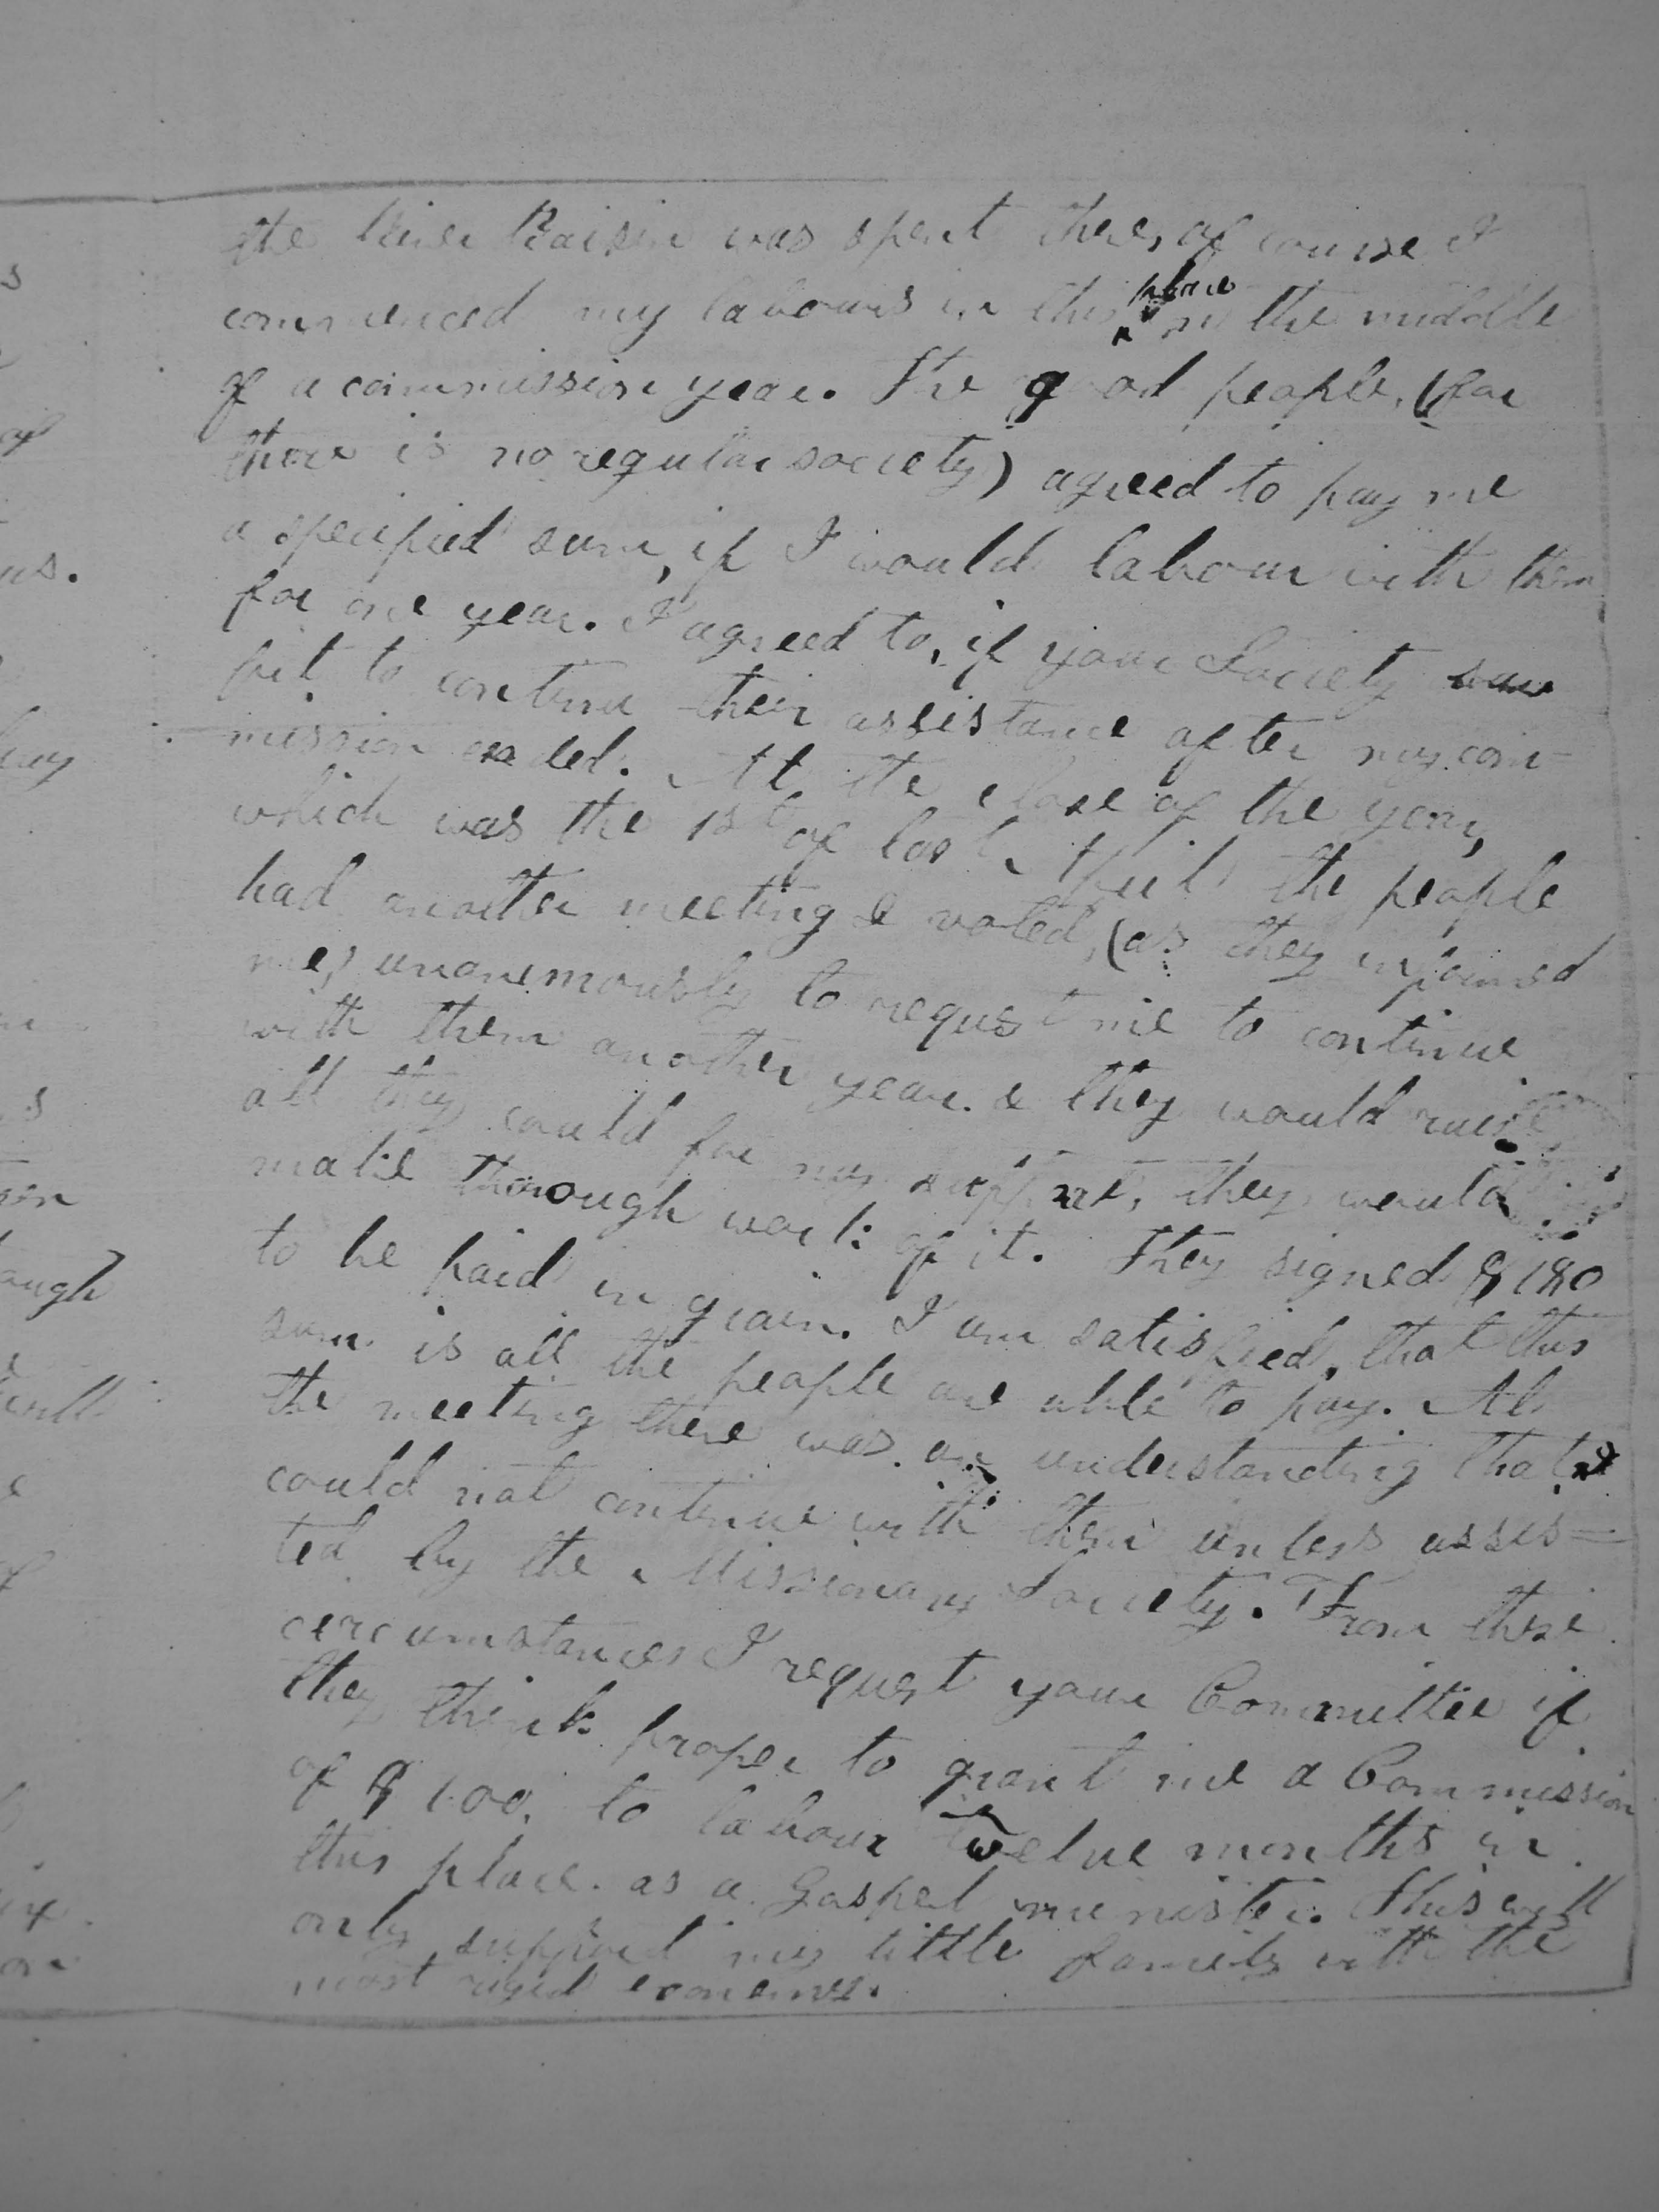 the River Raisin was spent there, of course I
commenced my labours in this place in the middle
of a commission year. The good people, (for
there is no regular society) agreed to pay me
a specified sum, if I would labour with them
for one year. I agreed to, if your Society saw
fit to continue their assistance after my com-
mission ended. At the close of the year,
which was the 1st of last April the people
had another meeting & voted, (as they informed
me) unanemously to request me to continue
with them another year. & they would raise
all they could for my support, they would
make thorough work of it. They signed $180
to be paid in grain. I am satisfied, that this
sum is all the people are able to pay. At
the meeting there was an understanding that I
could not continue with them unless assis=
ted by the Missionary Society. From these
circumstances I request your Committee if
they think proper to grant me a Commission
of $100. to labour twelve months in
this place. as a Gospel minister. This will
only support my little family with the
most rigid economy.
s
of
us.
s
ough
will
of
on